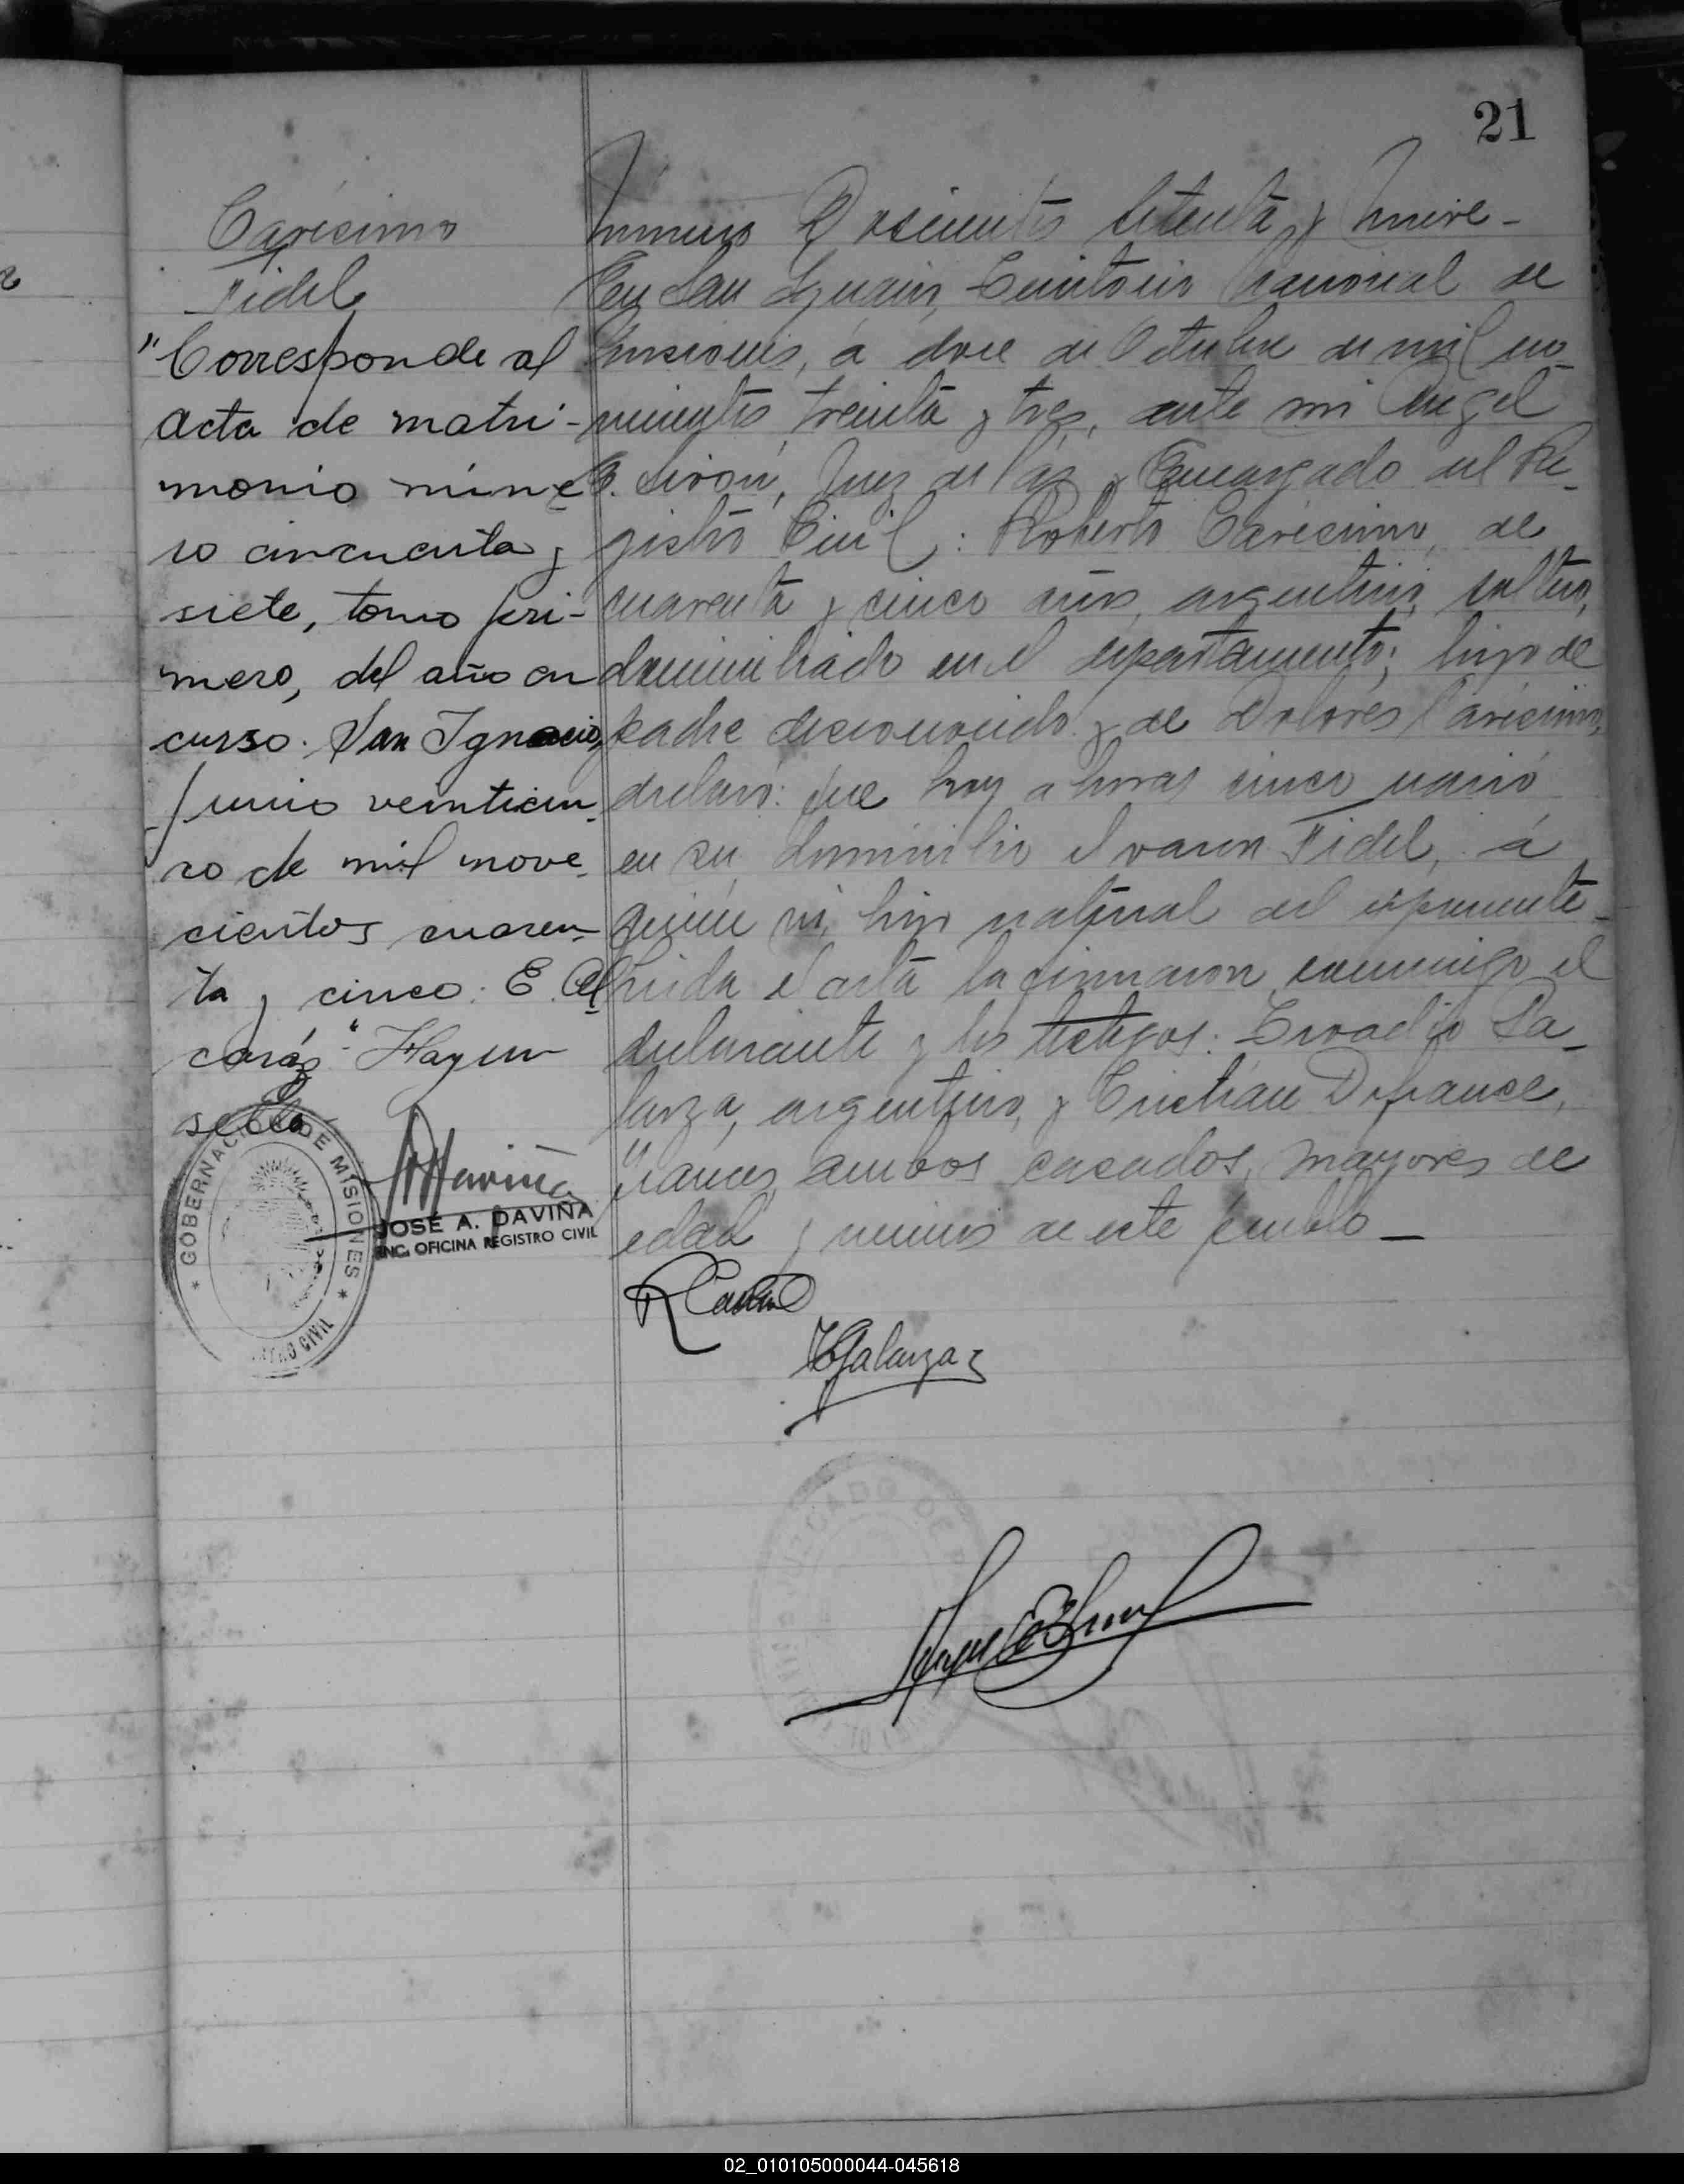 21
Carísimo
Fidel
"Corresponde al
acta de matri-
monio núme-
ro cincuenta y
siete, tomo pri-
mero, del año en
curso. San Ignacio,
Junio veinticin-
co de mil nove-
cientos cuaren-
ta y cinco: E. Al-
caráz" Hay un
sello
GOBERNACION DE MISIONES
REGISTRO CIVIL
JOSÉ A. DAVIÑA
ENC. OFICINA REGISTRO CIVIL
Número Doscientos setenta y nueve-
En San Ignacio, Territorio Nacional de
Misiones, á doce de Octubre de mil no-
vecientos treinta y tres, ante mi Angel
E. Giron, Juez de Paz y Encargado del Re-
gistro Civil: Roberto Carísimo, de
cuarenta y cinco años, argentino, soltero,
domiciliado en el departamento; hijo de
padre desconocido y de Dolores Carísimo,
declaró: que hoy a horas cinco nació
en su domicilio el varon Fidel, á
quien vi, hijo natural del exponente-
Leida el acta la firmaron conmigo el
declarante y los testigos: Ga-
larza, argentino, y Cristián Defrance,
francés, ambos casados, mayores de
edad y vecinos de este pueblo-
Galarza
JUZGADO DE
02_010105000044-045618